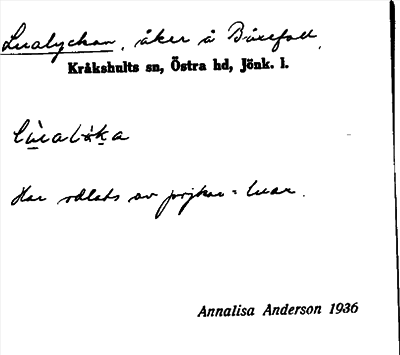 Lualyckan, åker å Båxefall,
Kråkshults sn, Östra hd, Jönk. l.
Har odlats av pojkar = luar.
Annalisa Anderson 1936